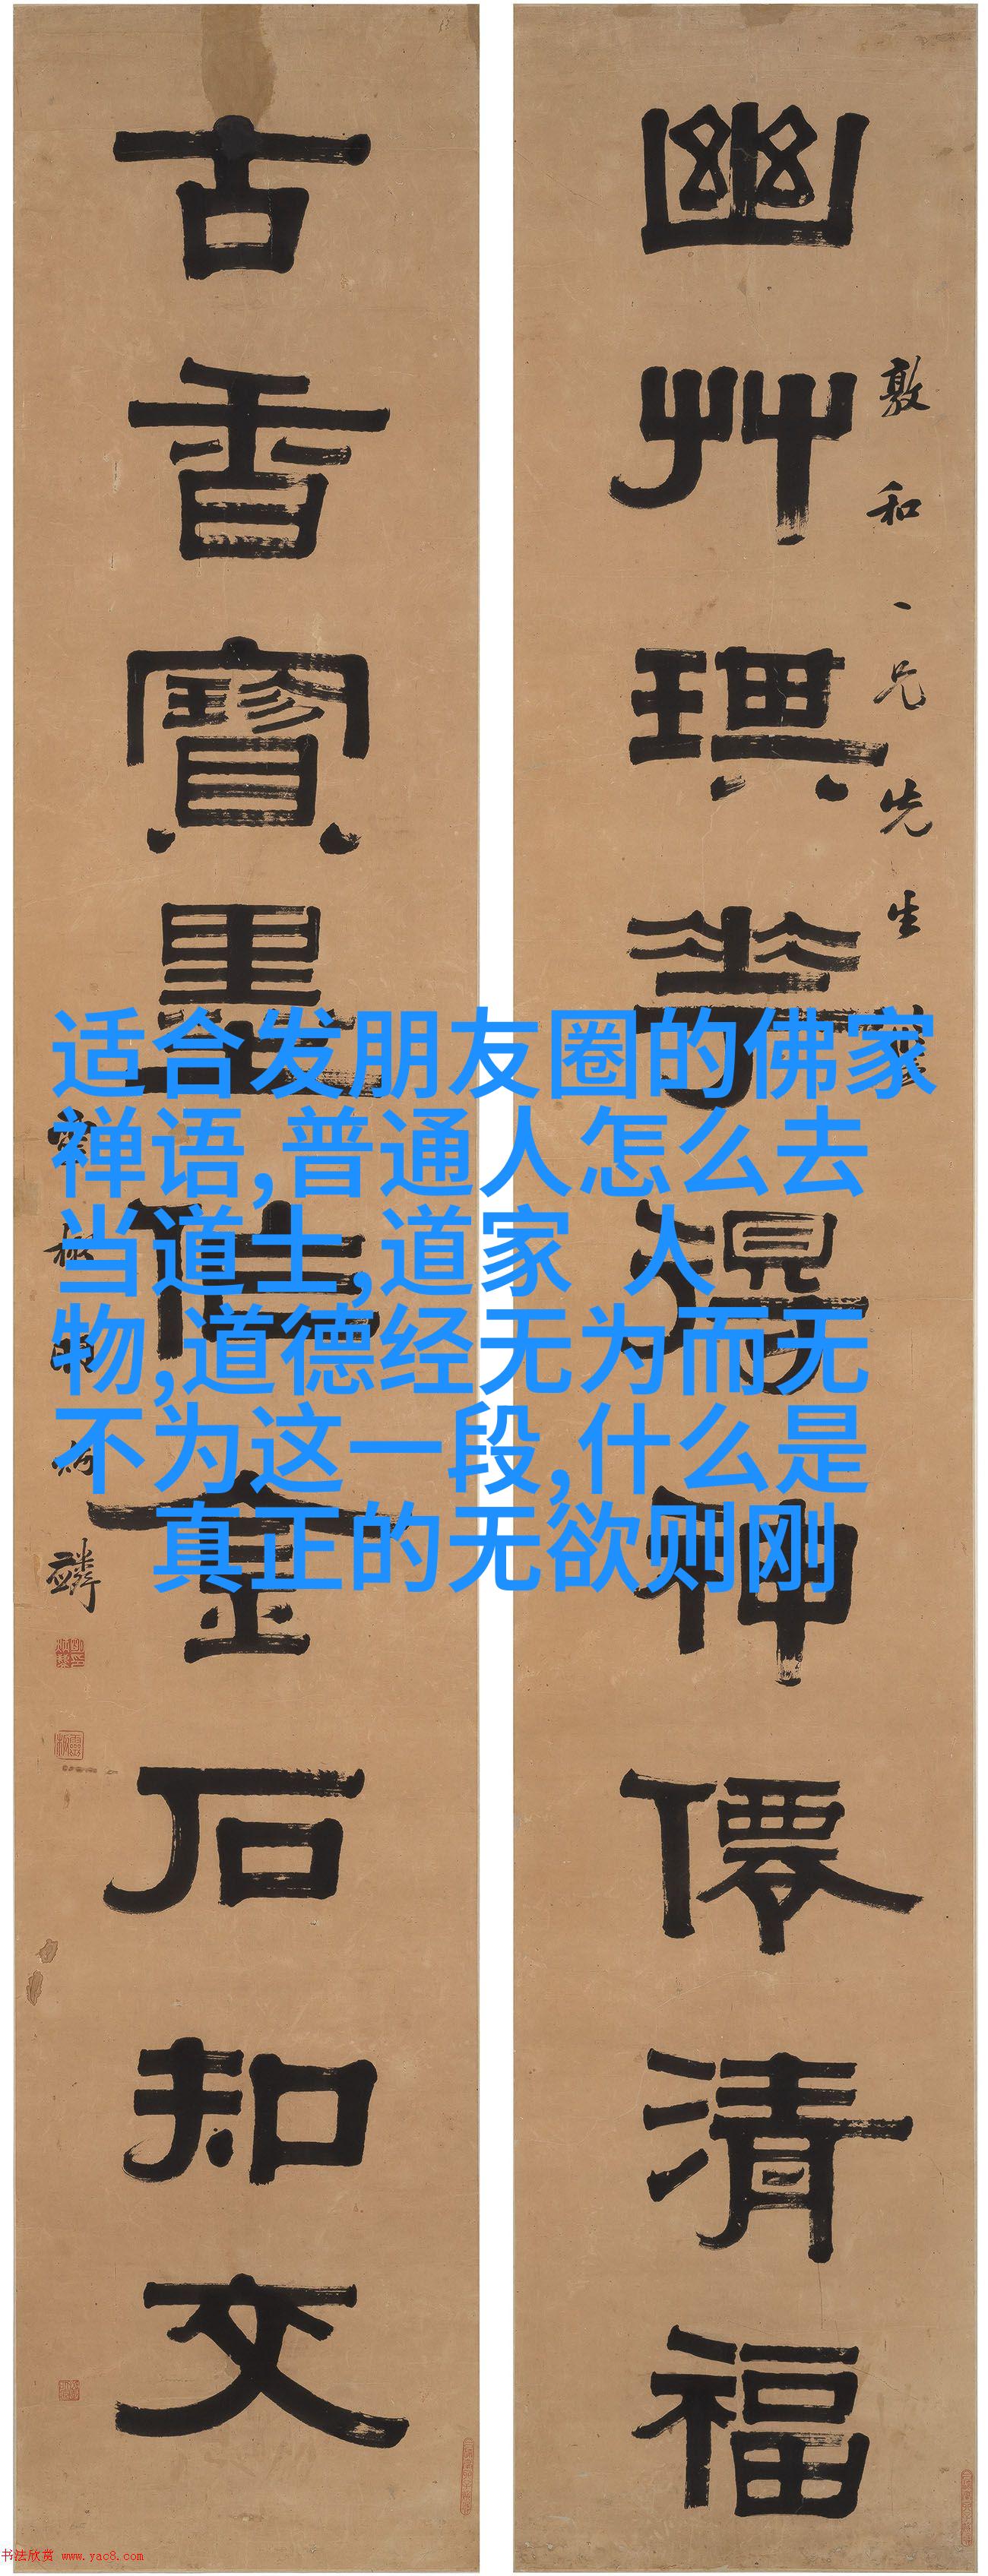 幽艸琪華得神僊清福
敦和一兄先生
古香寶墨佳金石知交
适合发朋友圈的佛家
禅语,普通人怎么去
当道士,道家 人
物,道德经无为而无
不为这一段,什么是
真正的无欲则刚
书法欣赏 www.yac8.com